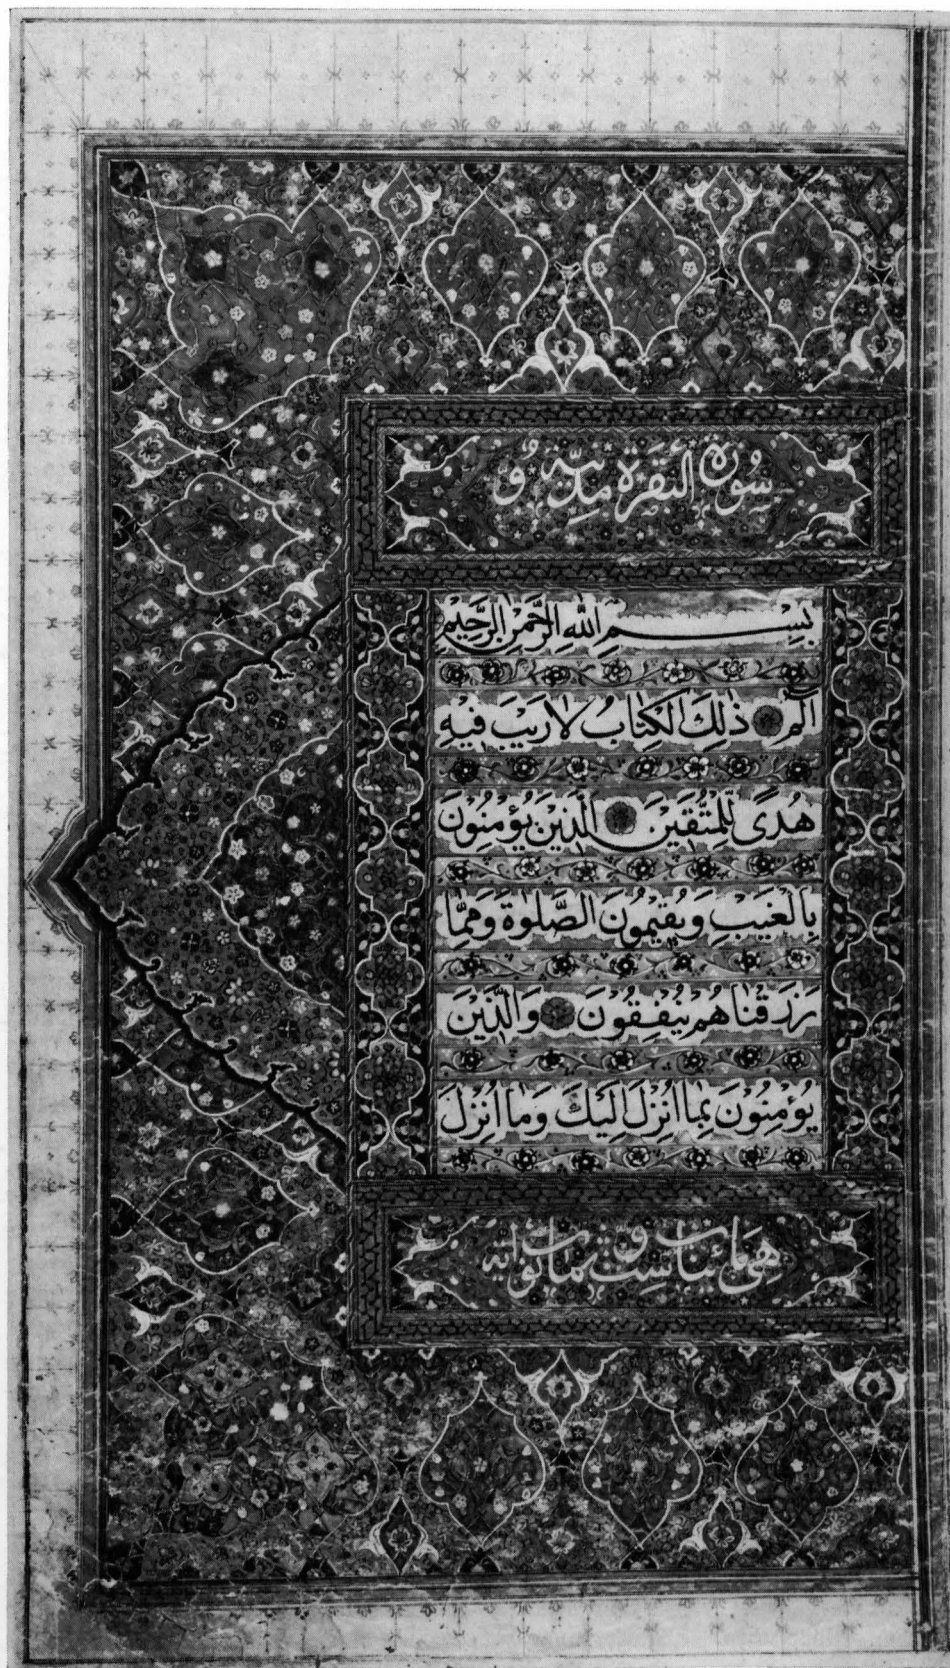 سُورَةُ الْبَقَرَة مَدَنِيَّة وَ
بِسْمِ اللَّهِ الرَّحْمَنِ الرَّحِيمِ
الٓمٓ ذٰلِكَ الْكِتَابُ لَا رَيْبَ فِيهِ
هُدًى لِّلْمُتَّقِينَ الَّذِينَ يُؤْمِنُونَ
بِالْغَيْبِ وَيُقِيمُونَ الصَّلٰوةَ وَمِمَّا
رَزَقْنَاهُمْ يُنْفِقُونَ وَالَّذِينَ
يُؤْمِنُونَ بِمَا أُنْزِلَ إِلَيْكَ وَمَا أُنْزِلَ
هِيَ مائتان وست ثمانون آية